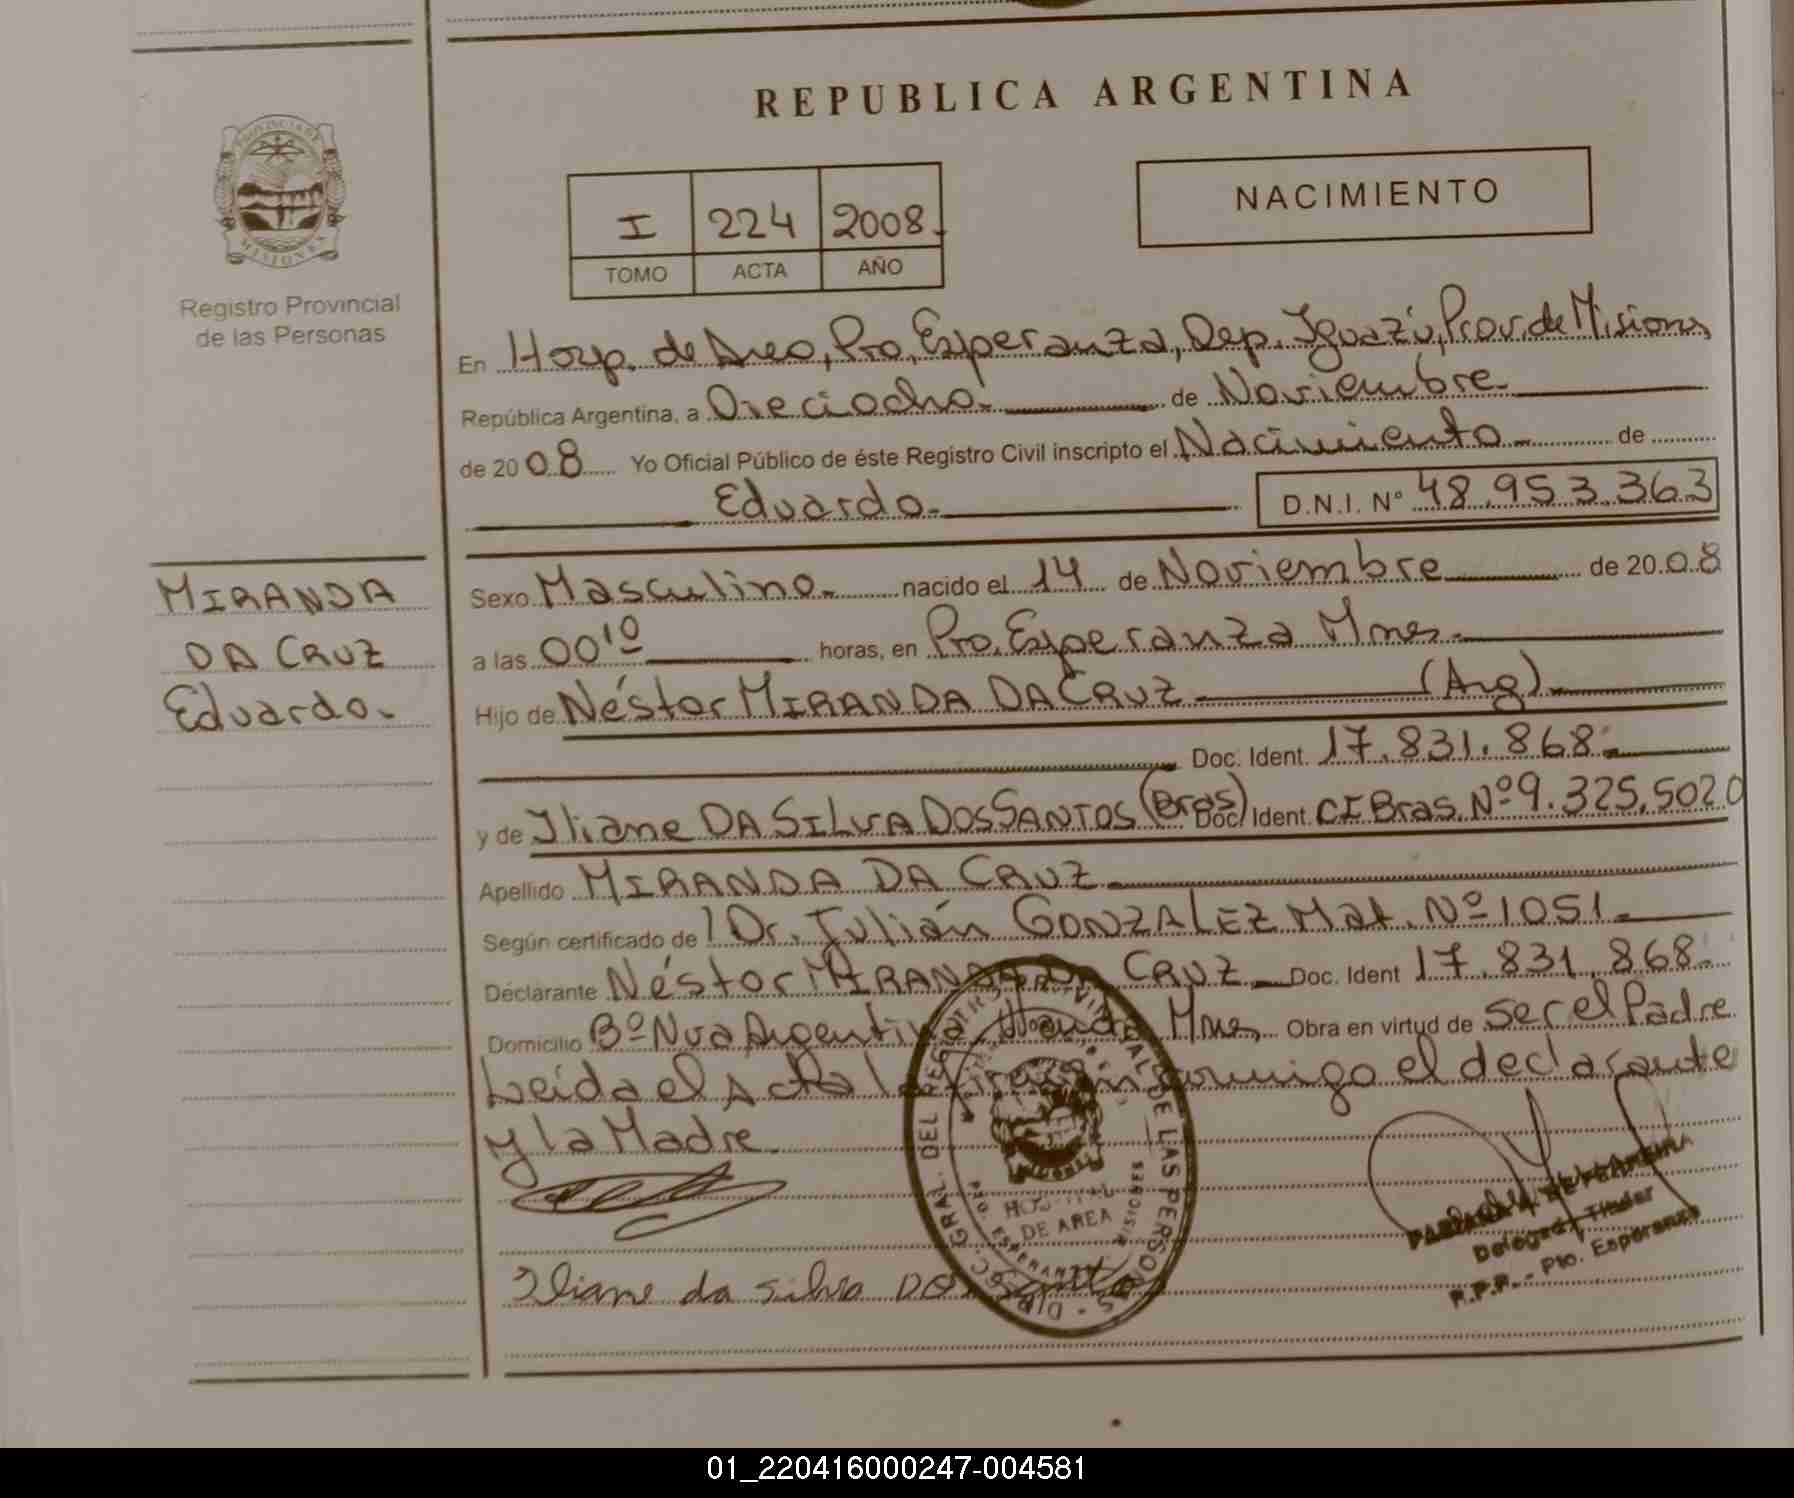 REPUBLICA ARGENTINA
PROVINCIA DE
MISIONES
Registro Provincial
de las Personas
I 224 2008
TOMO ACTA AÑO
NACIMIENTO
En Hosp. de Area, Pto. Esperanza, Dep. Iguazú, Prov. de Misiones
República Argentina, a Dieciocho. de Noviembre.
de 20 08 Yo Oficial Público de éste Registro Civil inscripto el Nacimiento de
Eduardo. D.N.I. N° 48.953.363
MIRANDA
DA CRUZ
Eduardo.
Sexo Masculino. nacido el 14 de Noviembre de 20 08
a las 00¹⁰ horas, en Pto. Esperanza Mnes.
Hijo de Néstor MIRANDA DA CRUZ (Arg).
Doc. Ident. 17.831.868.
y de Iliane DA SILVA DOS SANTOS (Bras) Doc. Ident. CI Bras. Nº 9.325.502.0
Apellido MIRANDA DA CRUZ
Según certificado de l Dr. Julián GONZALEZ Mat. Nº 1051.
Declarante Néstor MIRANDA DA CRUZ Doc. Ident 17.831.868.
Domicilio Bº Nva Argentina Wanda Mnes Obra en virtud de ser el Padre
Leida el Acta la firman conmigo el declarante
y la Madre
DIRECC. GRAL. DEL REGISTRO PROVINCIAL DE LAS PERSONAS
HOSPITAL
DE AREA
PTO. ESPERANZA
MISIONES
Iliane da Silva Dos Santos
Delegada Titular
R.P.P. - Pto. Esperanza
01_220416000247-004581